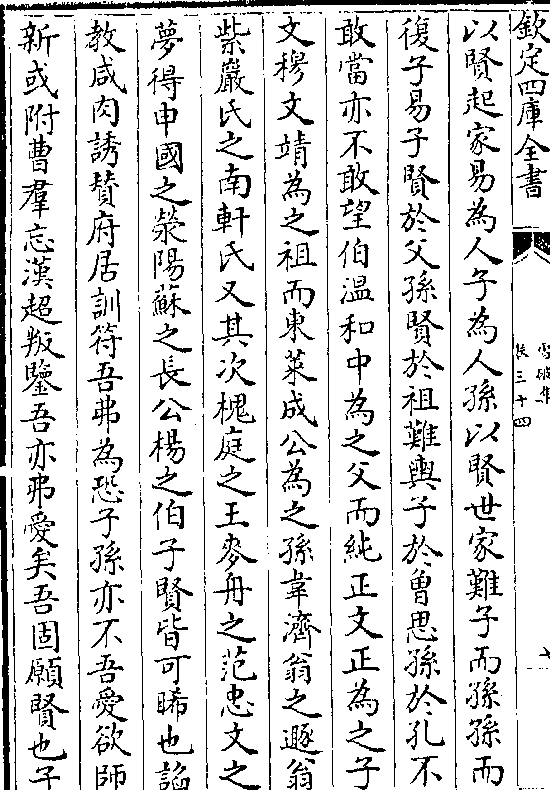 欽定四庫全書
卷三十四
以賢起家易為人子為人孫以賢世家難子而孫孫而
復子易子賢於父孫賢於祖難輿子於曾思孫於孔不
敢當亦不敢望伯温和中為之父而純正文正為之子
文穆文靖為之祖而東萊成公為之孫韋濟翁之遯翁
紫巖氏之南軒氏又其次槐庭之王麥舟之范忠文之
夢得申國之滎陽蘇之長公楊之伯子賢皆可睎也謟
教咸肉誘賛府居訓符吾弗為恐子孫亦不吾愛欲師
新或附曹羣忘漢超叛鑒吾亦弗愛矣吾固願賢也子